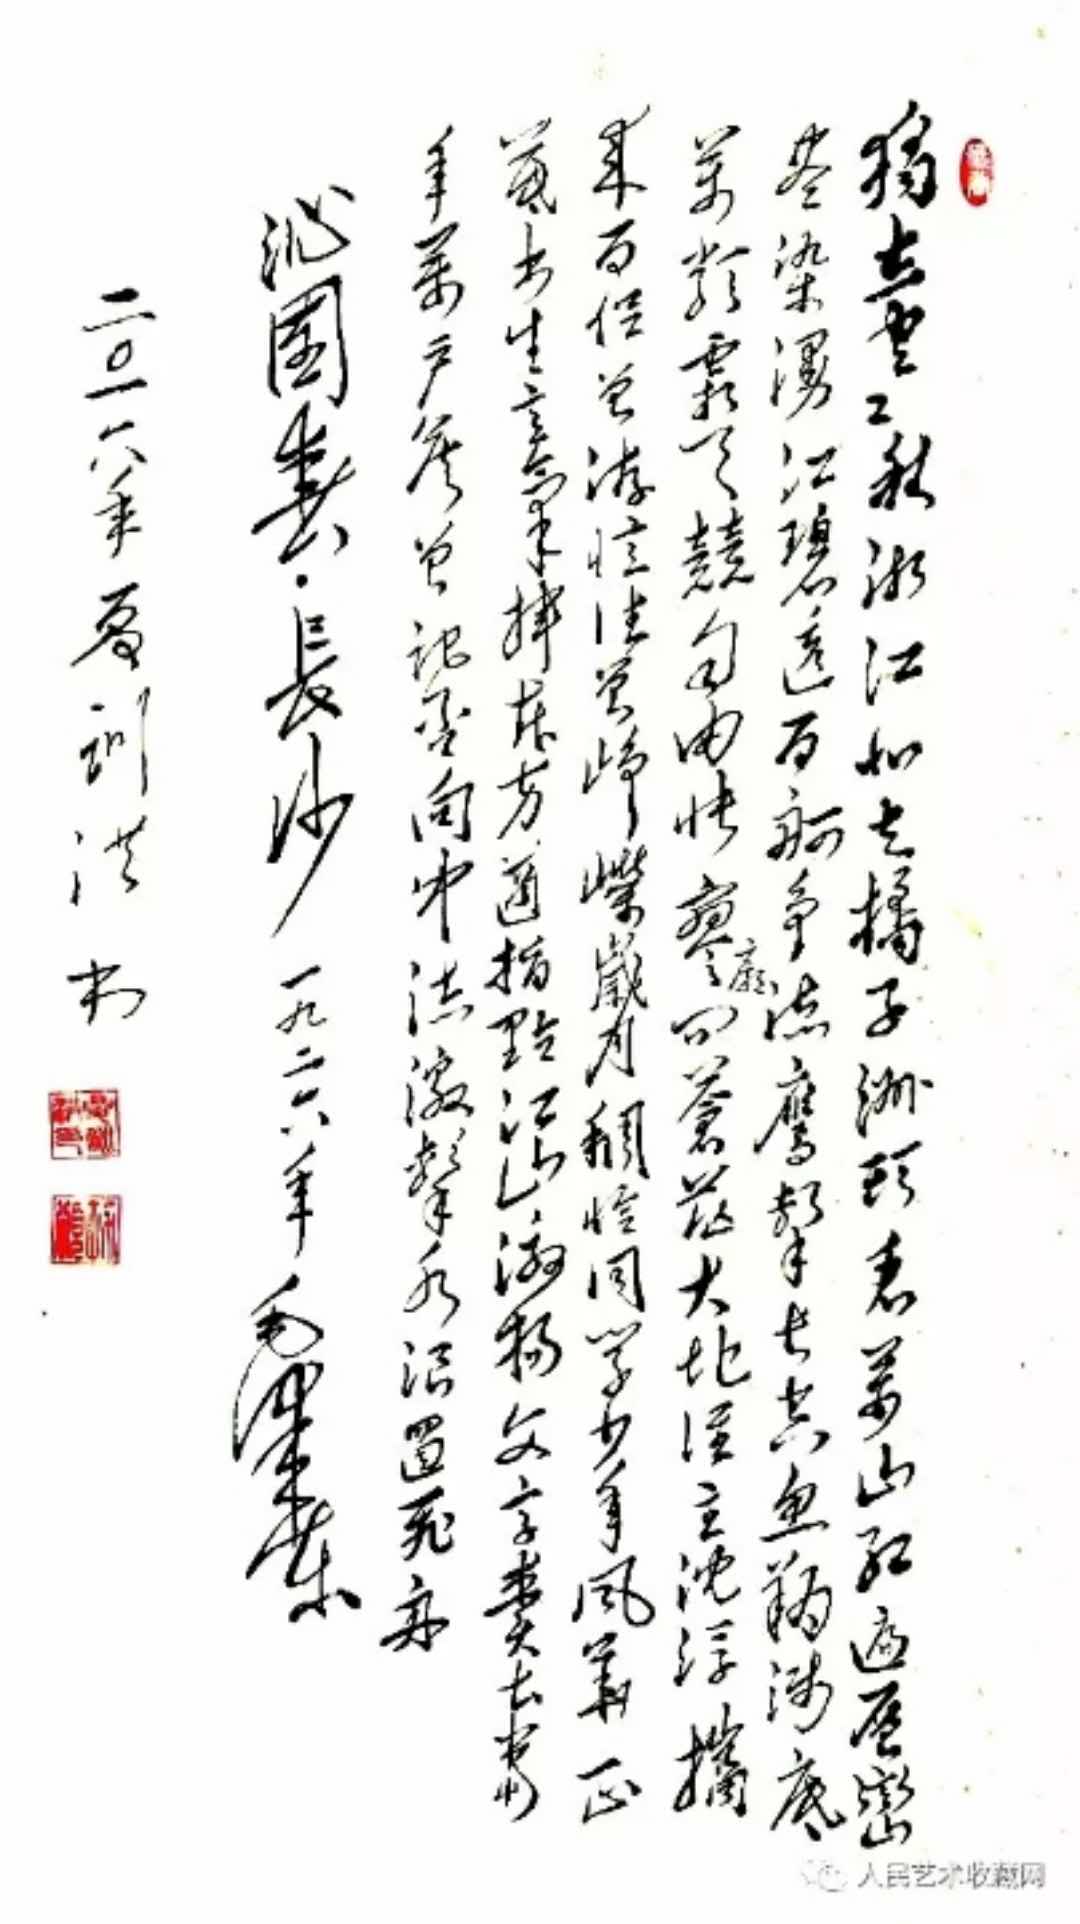 獨立寒秋湘江北去橘子洲頭看萬山紅遍層巒
尽染漫江碧透百舸争流鷹擊長空魚翔淺底
萬類霜天競自由怅寥廓问蒼茫大地誰主沈浮攜
来百侣曾游憶往昔崢嶸歲月稠恰同学少年風華正
茂书生意氣揮斥方遒指點江山激揚文字糞土當
年萬户侯曾記否向中流激擊水浪遏飛舟
沁園春·長沙 一九二六年 毛澤東
二〇一六年夏訓洪书
人民艺术收藏网